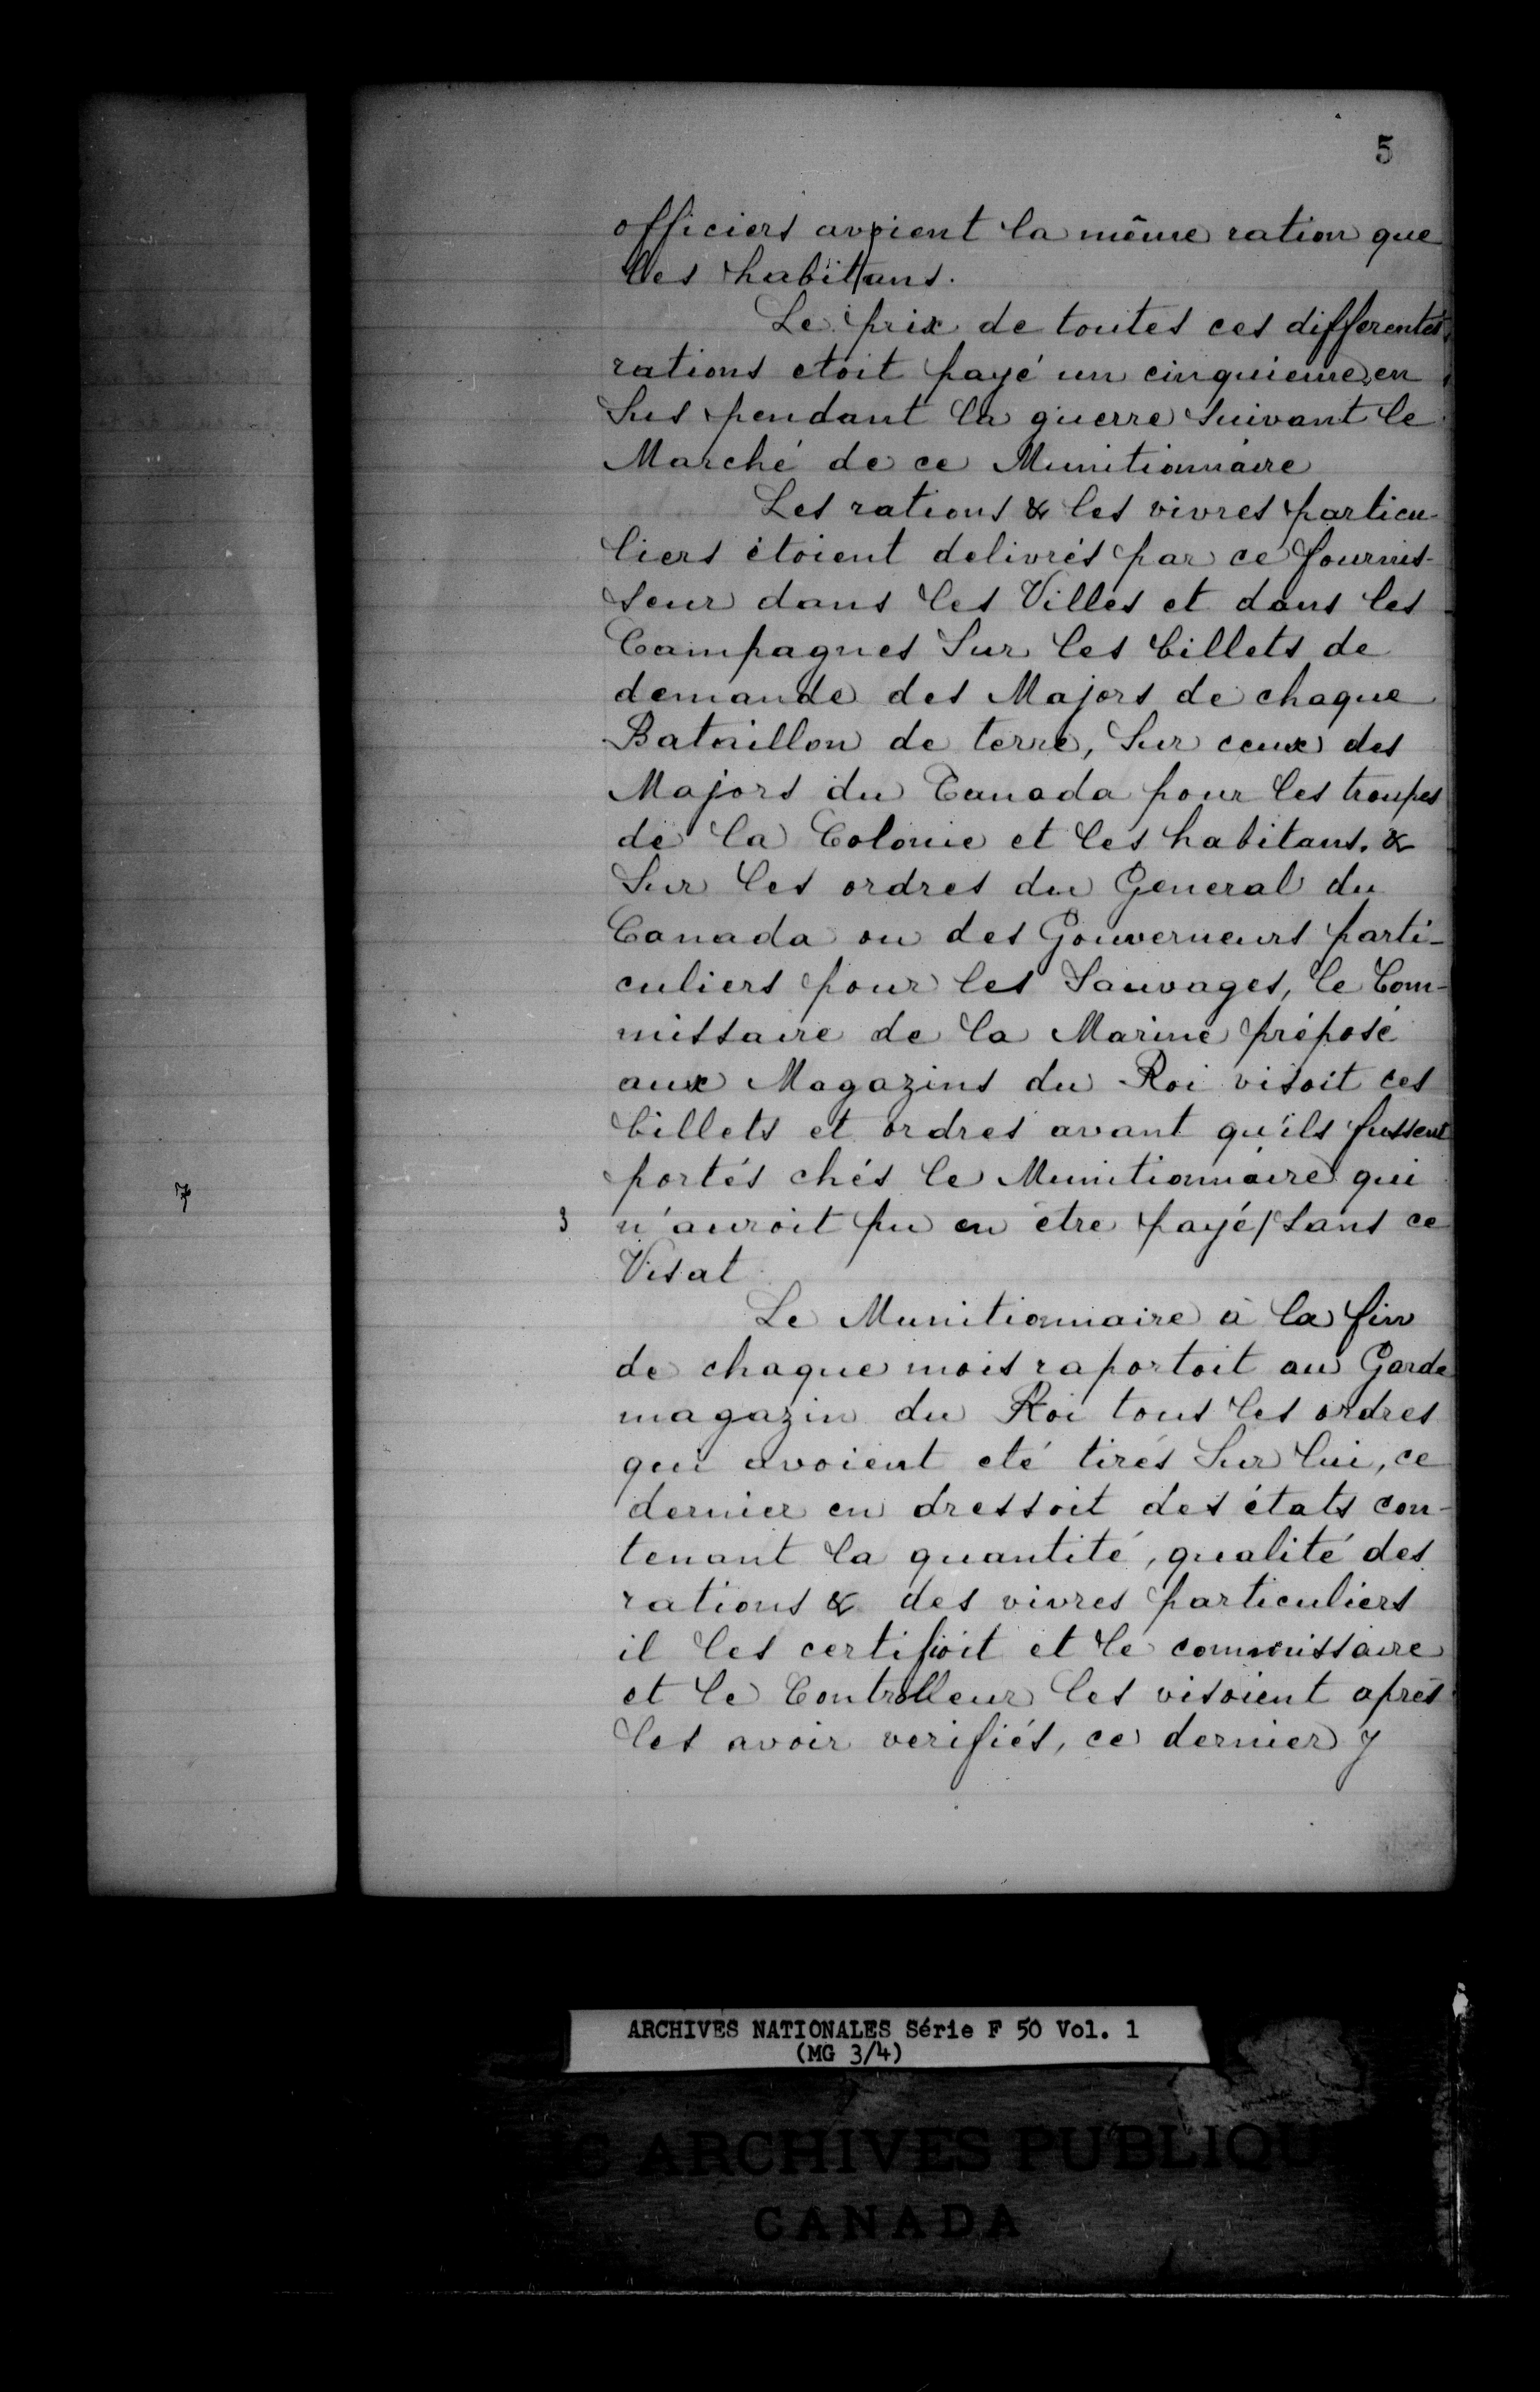 5
officiers avoient la même ration que
les habitans.
Le prix de toutes ces differentes
rations etoit payé un cinquieme en
Sus pendant la guerre suivant le
Marché de ce Munitionnaire
Les rations & les vivres particu-
liers étoient delivrés par ce fournis-
seur dans les Villes et dans les
Campagnes Sur les billets de
demande des Majors de chaque
Bataillon de terre, Sur ceux des
Majors du Canada pour les troupes
de la Colonie et les habitans. &
Sur les ordres du General du
Canada ou des Gouverneurs parti-
culiers pour les Sauvages, le Com-
missaire de la Marine préposé
aux Magazins du Roi visoit ces
billets et ordres avant qu'ils fussent
portés chés le Munitionnaire qui
3 n'auroit pu en être payé/sans ce
Visat
Le Munitionnaire à la fin
de chaque mois raportoit au Garde
magazin du Roi tous les ordres
qui avoient eté tirés Sur lui, ce
dernier en dressoit des états con-
tenant la quantité, qualité des
rations & des vivres particuliers
il les certifioit et le commissaire
et le Controlleur les visoient après
les avoir verifiés, ce dernier y
ARCHIVES NATIONALES Série F 50 Vol. 1
(MG 3/4)
ARCHIVES PUBLIQU
CANADA